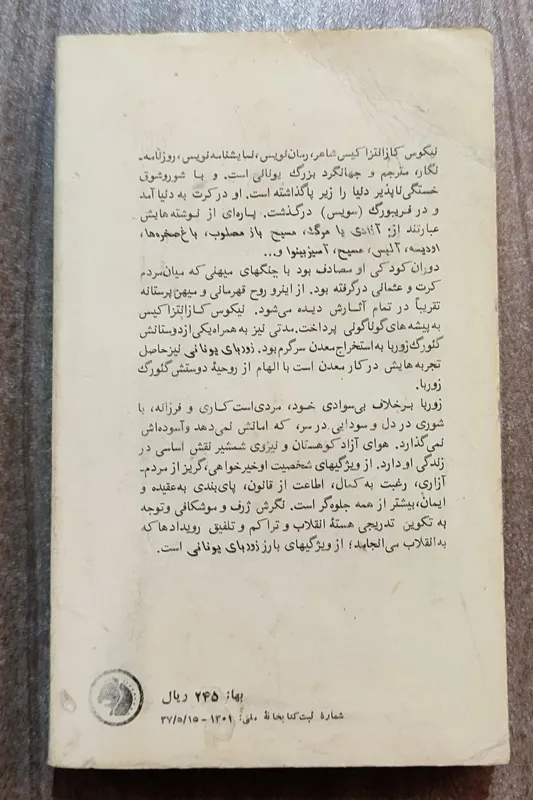 نیکوس کازانتزاکیس شاعر، رمان‌نویس، نمایشنامه‌نویس، روزنامه‌ـ
نگار، مترجم و جهانگرد بزرگ یونانی است. و با شوروشوق
خستگی‌ناپذیر دنیا را زیر پاگذاشته است. او در کرت به دنیا آمد
و در فریبورگ (سویس) درگذشت. پاره‌ای از نوشته‌هایش
عبارتند از: آزادی یا مرگ، مسیح باز مصلوب، باغ صخره‌ها،
اودیسه، آلیس، مسیح، آسیزبینوا و..
دوران کودکی او مصادف بود با جنگهای میهنی که میان‌مردم
کرت و عثمانی درگرفته بود. از اینرو روح قهرمانی و میهن‌پرستانه
تقریباً در تمام آثارش دیده می‌شود. نیکوس کازانتزاکیس
به‌پیشه‌های گوناگونی پرداخت. مدتی نیز به همراه یکی از دوستانش
گئورگ زوربا به استخراج معدن سرگرم بود. زوربای یونانی نیز حاصل
تجربه‌هایش در کار معدن است با الهام از روحیهٔ دوستش گئورگ
زوربا.
زوربا برخلاف بی‌سوادی خود، مردی‌است کاری و فرزانه، با
شوری در دل و سودایی در سر، که امانش نمی‌دهد و آسوده‌اش
نمی‌گذارد. هوای آزاد کوهستان و نیروی شمشیر نقش اساسی در
زندگی او دارد. از ویژگیهای شخصیت او خیرخواهی، گریز از مردم‌ـ
آزاری، رغبت به کمال، اطاعت از قانون، پای‌بندی به‌عقیده و
ایمان، بیشتر از همه جلوه‌گر است. نگرش ژرف و موشکافی و توجه
به تکوین تدریجی هستهٔ انقلاب و تراکم و تلفیق رویدادها که
به‌انقلاب می‌انجامد؛ از ویژگیهای بارز زوربای یونانی است.
بها: ۲۴۵ ریال
شمارهٔ ثبت کتابخانهٔ ملی: ۱۳۰۱ - ۳۷/۵/۱۵